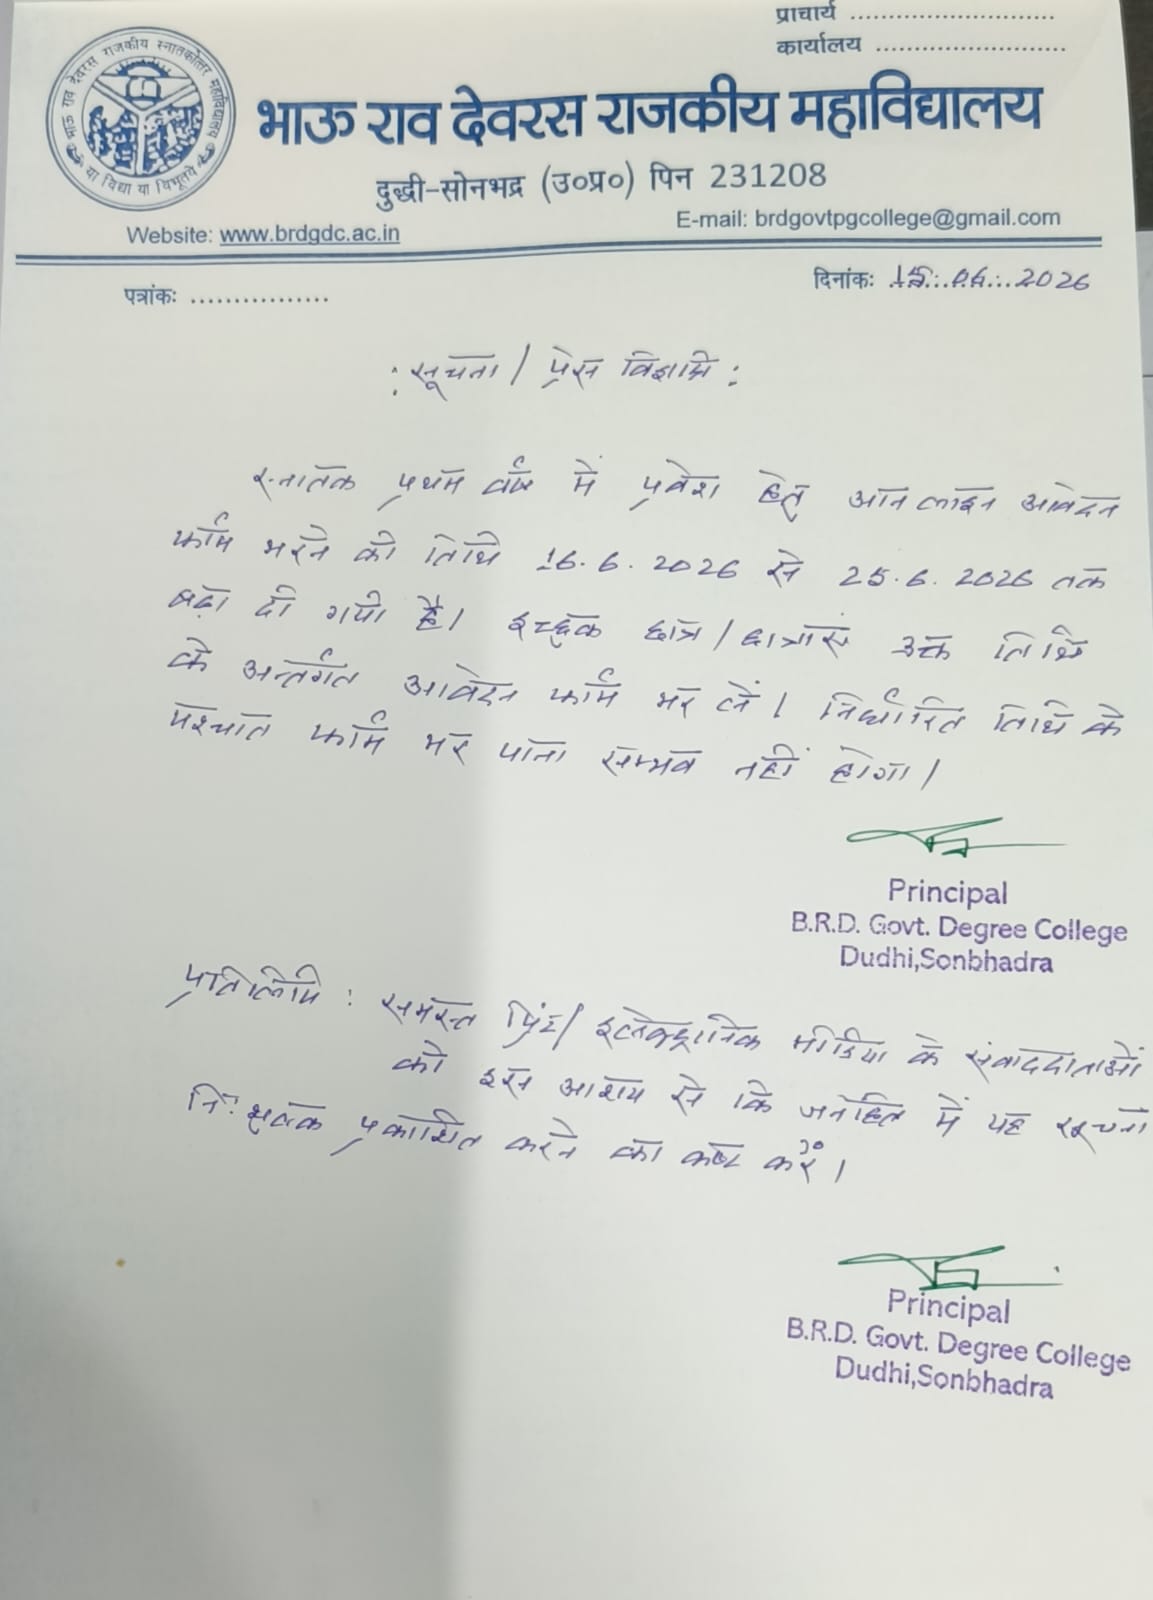 प्राचार्य ............................
कार्यालय ............................
भाऊ राव देवरस राजकीय स्नातकोत्तर महाविद्यालय
या विद्या या विभूतये
भाऊ राव देवरस राजकीय महाविद्यालय
दुद्धी-सोनभद्र (उ०प्र०) पिन 231208
Website: www.brdgdc.ac.in
E-mail: brdgovtpgcollege@gmail.com
पत्रांकः ................
दिनांकः 15..06...2026
: सूचना / प्रेस विज्ञप्ति :
स्नातक प्रथम वर्ष में प्रवेश हेतु ऑनलाइन आवेदन
फॉर्म भरने की तिथि 16.6.2026 से 25.6.2026 तक
बढ़ा दी गयी है। इच्छुक छात्र / छात्राएं उक्त तिथि
के अन्तर्गत आवेदन फॉर्म भर लें। निर्धारित तिथि के
पश्चात फॉर्म भर पाना सम्भव नहीं होगा।
Principal
B.R.D. Govt. Degree College
Dudhi,Sonbhadra
प्रतिलिपि : समस्त प्रिंट/ इलेक्ट्रानिक मीडिया के संवाददाताओं
को इस आशय से कि जनहित में यह सूचना
निःशुल्क प्रकाशित करने का कष्ट करें।
Principal
B.R.D. Govt. Degree College
Dudhi,Sonbhadra